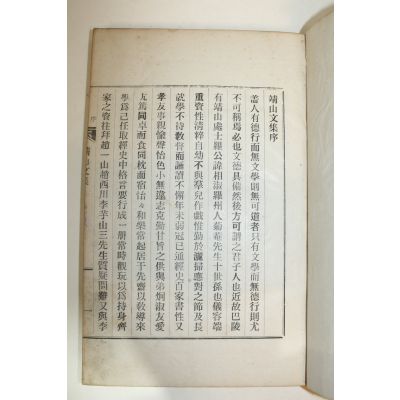 靖山文集序
蓋人有德行而無文學則無可道者只有文學而無德行則尤
不可稱焉必也文德具備然後方可謂之君子人也近故巴陵
有靖山處士羅公諱相淑羅州人菊菴先生十世孫也儀容端
重資性淸粹自幼不與羣兒作戲惟勤於灑掃應對之節及長
就學不待敎督而誦讀不懈年未弱冠已通經史百家書性又
孝友事親愉聲怡色小無違志克勤甘旨之供與弟炯淑友愛
尤篤同卓而食同枕而宿怡々和樂常起居于先齋以敎導來
學爲己任取經史中格言要行成一冊常時觀玩以爲持身齊
家之資往拜趙一山趙西川李芋山三先生質疑問難又與李
序
靖山文集